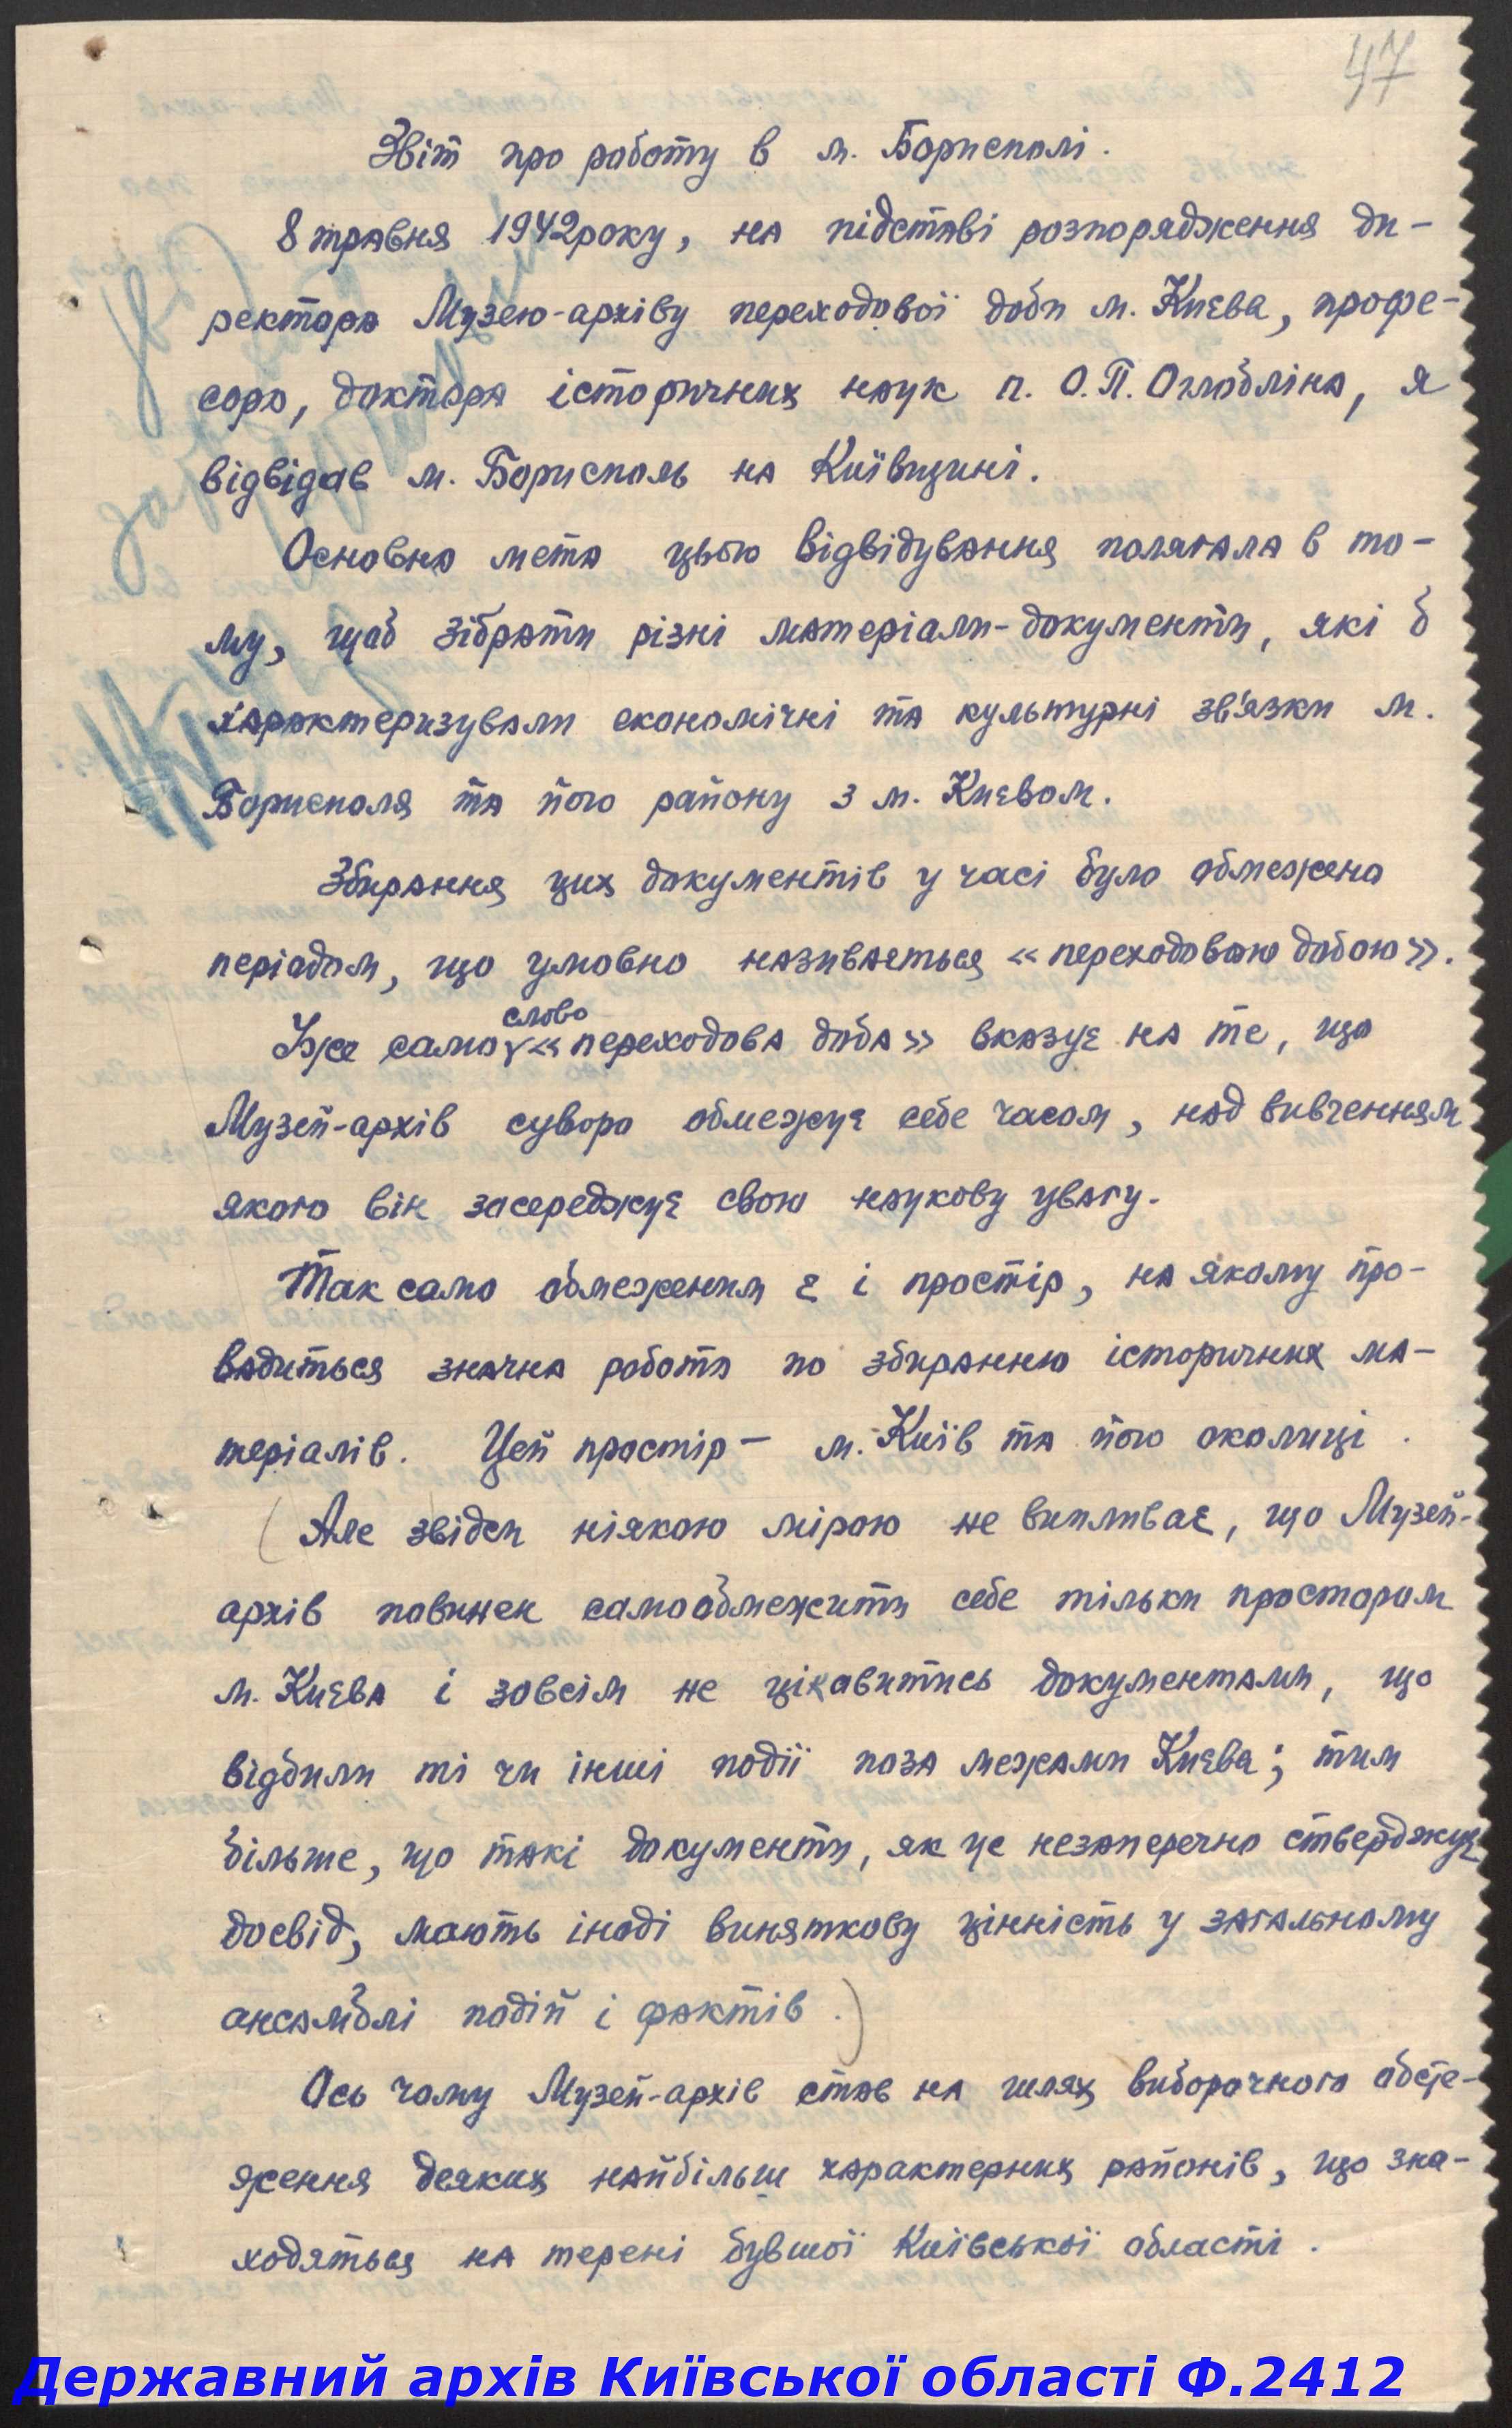 47
Звіт про роботу в м. Борисполі.
8 травня 1942 року, на підставі розпорядження ди-
ректора Музею-архіву переходової доби м. Києва, профе-
сора, доктора історичних наук п. О.П. Оглобліна, я
відвідав м. Бориспіль на Київщині.
Основна мета цього відвідування полягала в то-
му, щоб зібрати різні матеріали-документи, які б
характеризували економічні та культурні зв'язки м.
Борисполя та його району з м. Києвом.
Збирання цих документів у часі було обмежено
періодом, що умовно називається «переходовою добою».
Уже само слово «переходова доба» вказує на те, що
Музей-архів суворо обмежує себе часом, над вивченням
якого він засереджує свою наукову увагу.
Так само обмеженим є і простір, на якому про-
вадиться значна робота по збиранню історичних ма-
теріалів. Цей простір — м. Київ та його околиці.
(Але звідси ніякою мірою не випливає, що Музей-
архів повинен самообмежити себе тільки простором
м. Києва і зовсім не цікавитись документами, що
відбили ті чи інші події поза межами Києва; тим
більше, що такі документи, як це незаперечно стверджує
досвід, мають іноді виняткову цінність у загальному
ансамблі подій і фактів.)
Ось чому Музей-архів став на шлях виборочного обсте-
ження деяких найбільш характерних районів, що зна-
ходяться на терені бувшої Київської області.
Державний архів Київської області Ф.2412